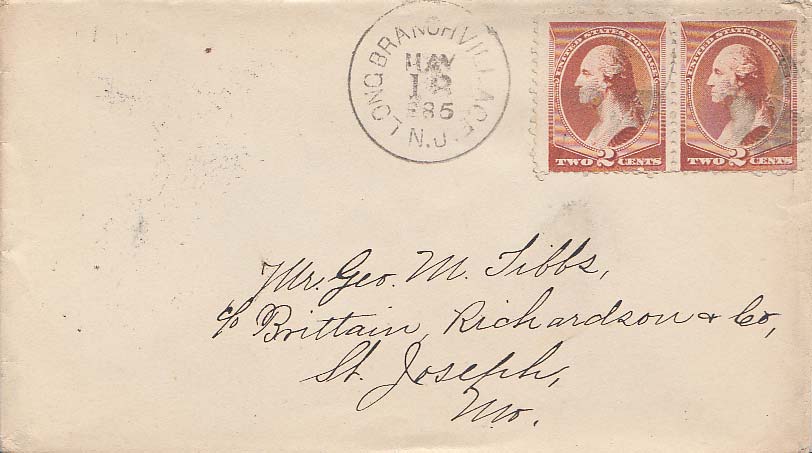 LONG BRANCH VILLAGE
MAY
18
N.J.
UNITED STATES POSTAGE
TWO 2 CENTS
UNITED STATES POSTAGE
TWO 2 CENTS
Mr. Geo. M. Tibbs,
c/o Brittain, Richardson & Co,
St. Joseph,
Mo.